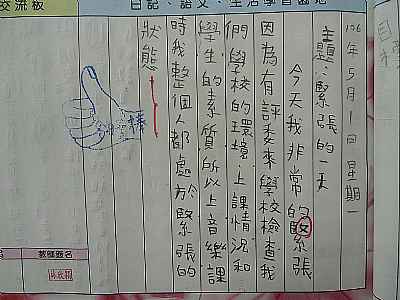 交流板
日記、語文、生活學習園地
106年5月1日星期一
主題:緊張的一天
今天我非常的緊張
因為有評委來學校檢查我
們學校的環境、上課情況和
學生的素質所以上音樂課
時我整個人都處於緊張的
狀態
棒
教師簽名